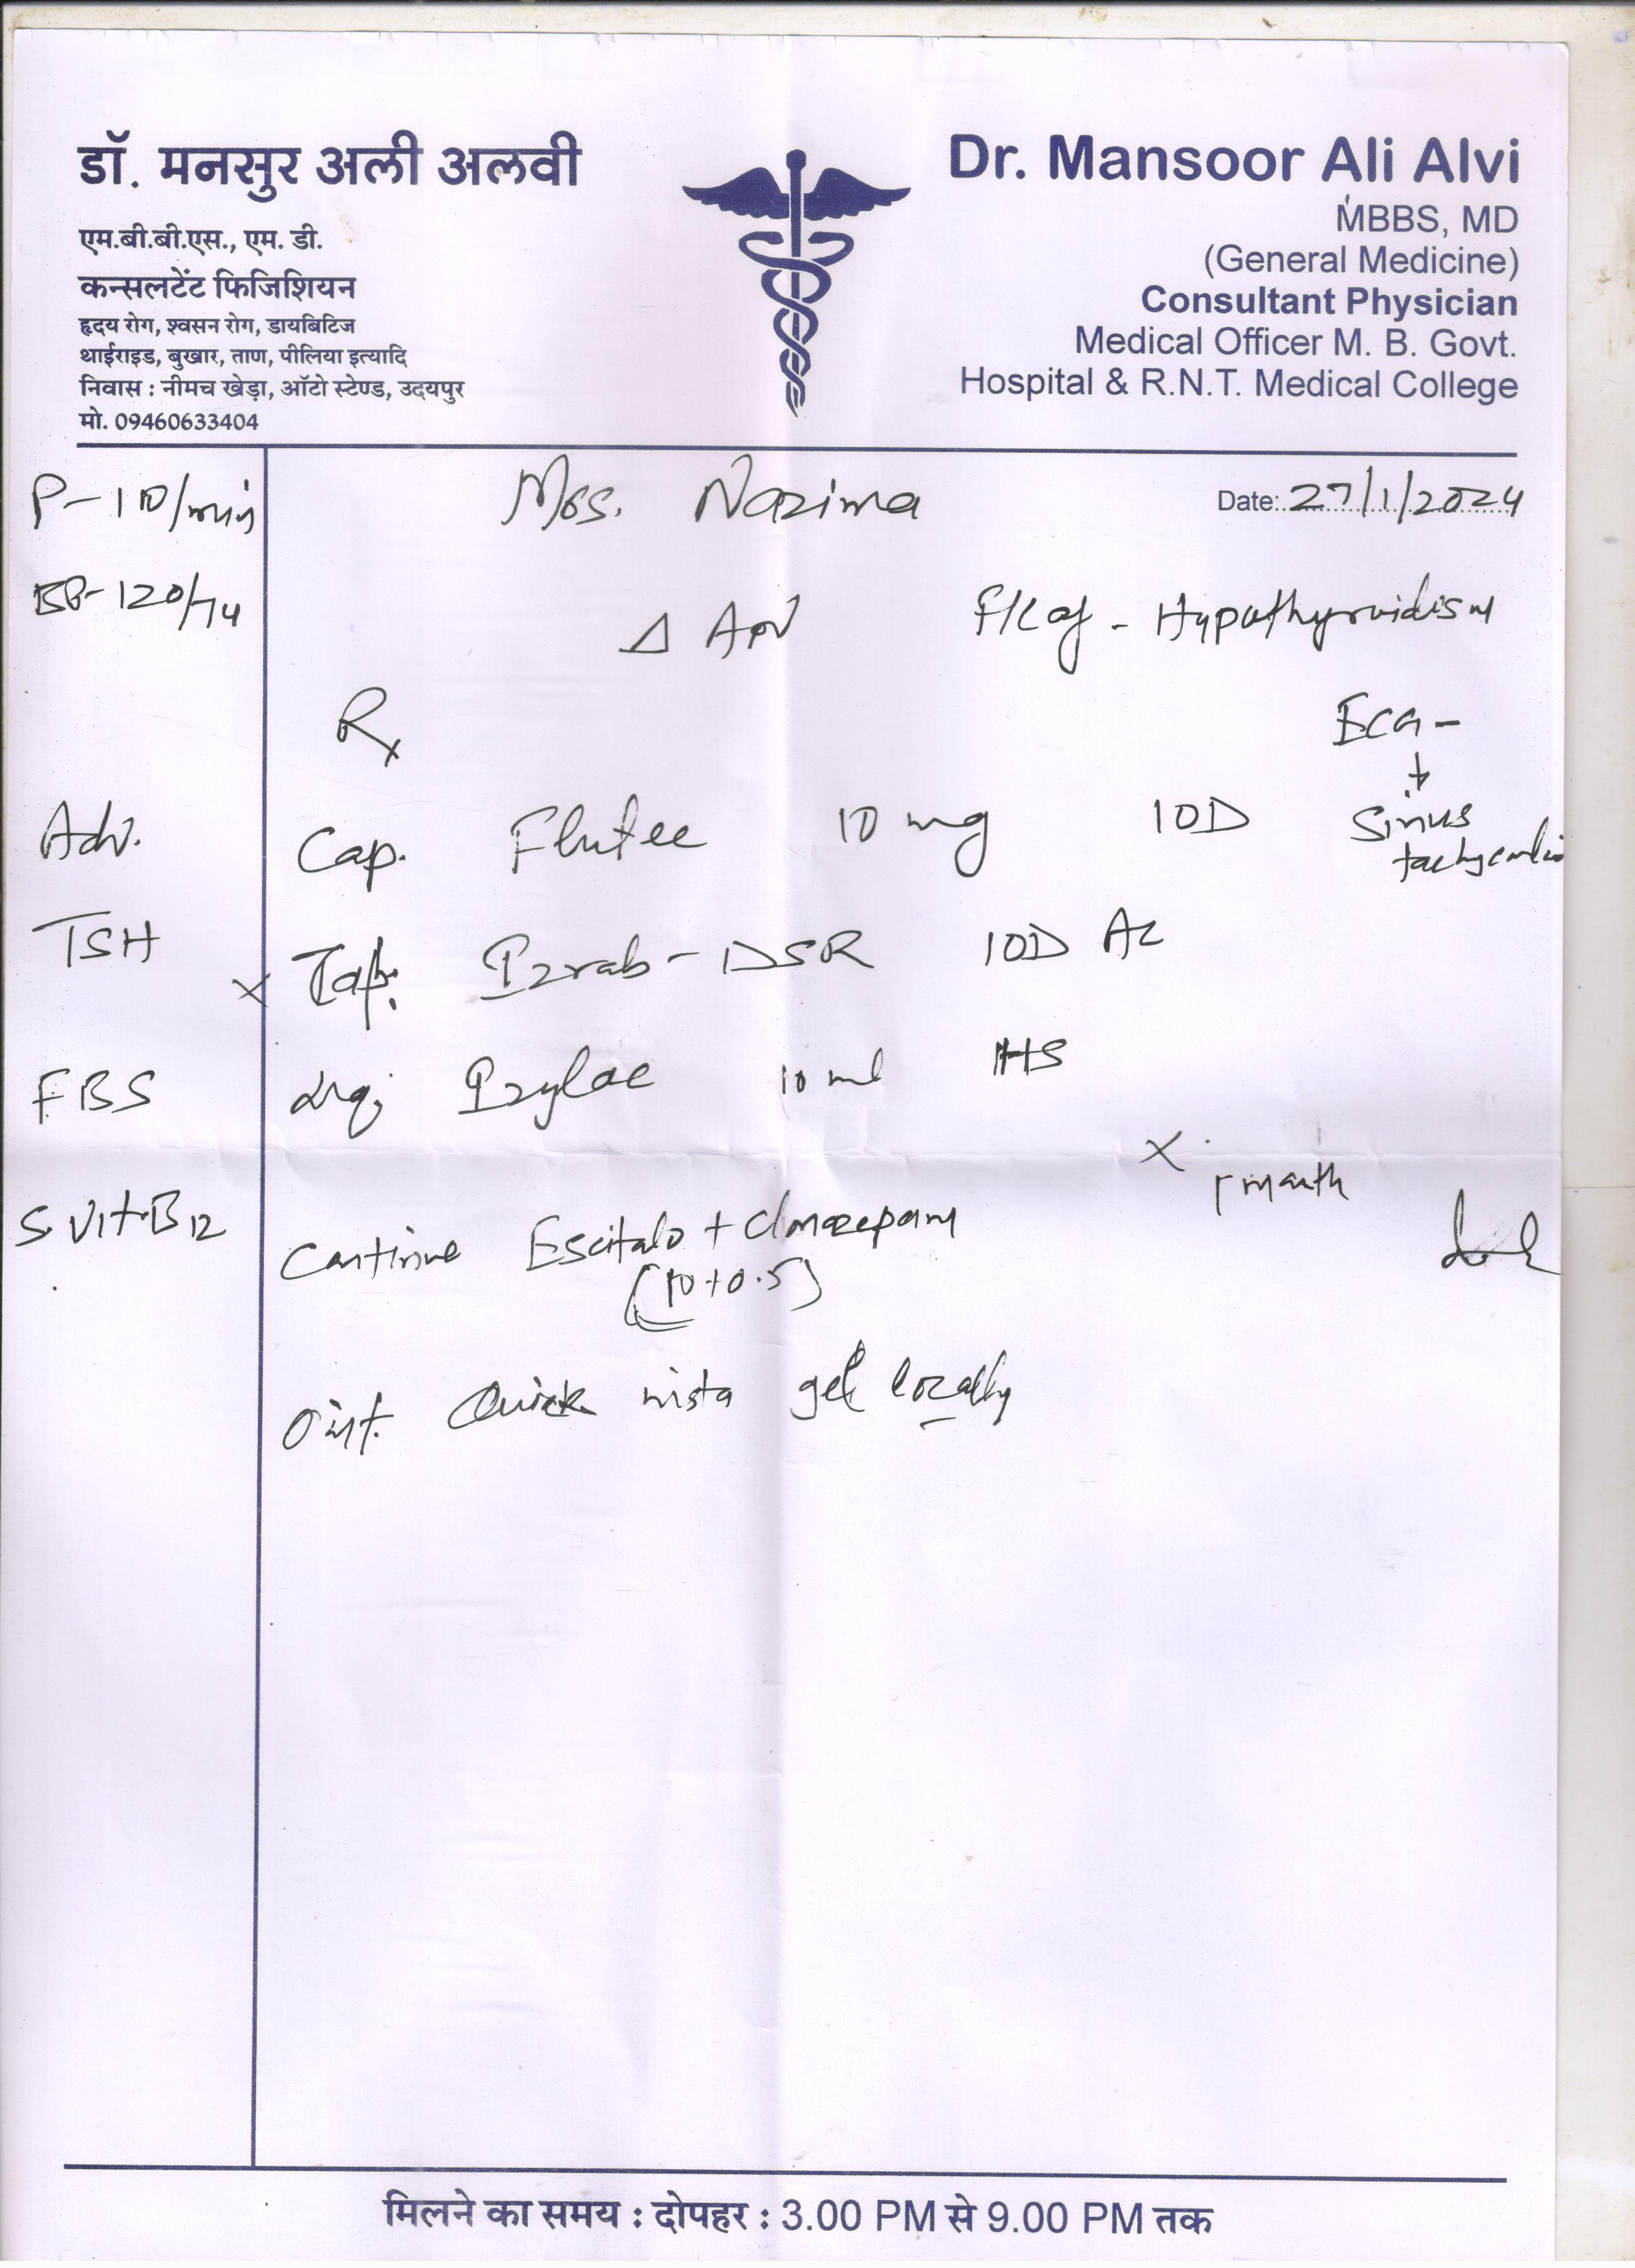 डॉ. मनसुर अली अलवी
एम.बी.बी.एस., एम. डी.
कन्सलटेंट फिजिशियन
हृदय रोग, श्वसन रोग, डायबिटिज
थाईराइड, बुखार, ताण, पीलिया इत्यादि
निवास : नीमच खेड़ा, ऑटो स्टेण्ड, उदयपुर
मो. 09460633404
Dr. Mansoor Ali Alvi
MBBS, MD
(General Medicine)
Consultant Physician
Medical Officer M. B. Govt.
Hospital & R.N.T. Medical College
P-110/min
Mrs. Nazima
Date: 27/1/2024
BP-120/74
Δ
- Hypothyroidism
Rx
ECG -
↓
Sinus
tachycardia
Adv.
Cap. Flutee 10 mg 1OD
TSH
x Tab. Izrab-DSR 1OD AC
FBS
Liq. Izylac 10 ml HS
x 1 month
S. Vit. B12
Continue Escitalo + Clonazepam
(10+0.5)
Oint. Quick nista gel locally
मिलने का समय : दोपहर : 3.00 PM से 9.00 PM तक